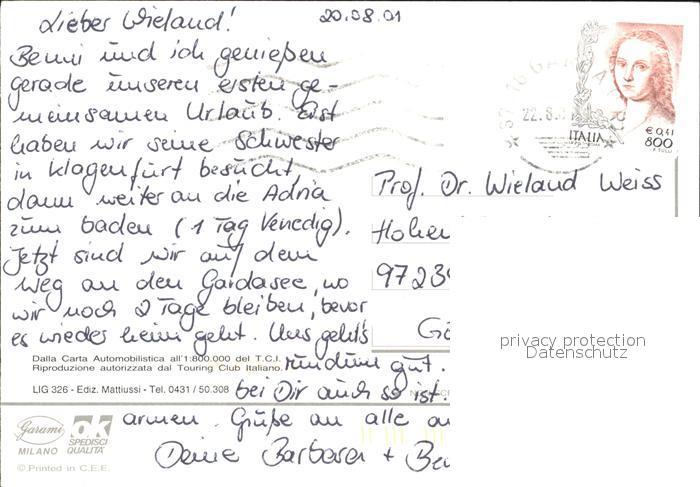 Lieber Wieland!
20.08.01
Benni und ich genießen
gerade unseren ersten ge-
meinsamen Urlaub. Erst
haben wir seine Schwester
in Klagenfurt besucht,
dann weiter an die Adria
zum baden (1 Tag Venedig).
Jetzt sind wir auf dem
Weg an den Gardasee, wo
wir noch 2 Tage bleiben, bevor
es wieder heim geht. Uns geht's
rundum gut.
bei Dir auch so ist.
armen. Grüße an alle
Deine Barbara +
22.8.
ITALIA
€ 0,41
800
Prof. Dr. Wieland Weiss
9723
privacy protection
Datenschutz
Dalla Carta Automobilistica all'1:800.000 del T.C.I.
Riproduzione autorizzata dal Touring Club Italiano.
LIG 326 - Ediz. Mattiussi - Tel. 0431 / 50.308
Garami
MILANO
OK
SPEDISCI
QUALITA'
© Printed in C.E.E.